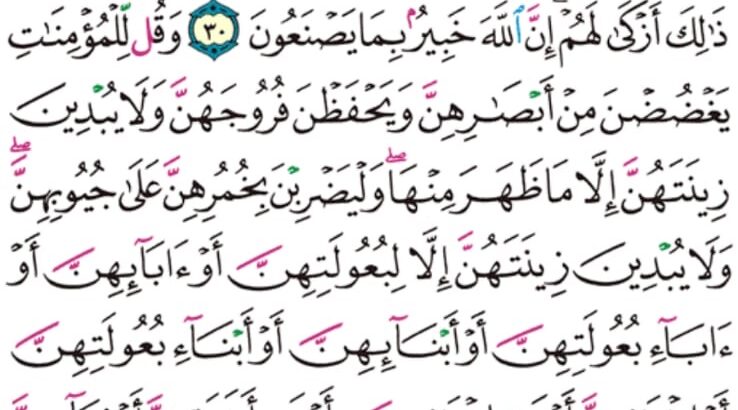 ذَٰلِكَ أَزْكَىٰ لَهُمْ إِنَّ ٱللَّهَ خَبِيرُۢ بِمَا يَصْنَعُونَ ٣٠ وَقُل لِّلْمُؤْمِنَٰتِ
يَغْضُضْنَ مِنْ أَبْصَٰرِهِنَّ وَيَحْفَظْنَ فُرُوجَهُنَّ وَلَا يُبْدِينَ
زِينَتَهُنَّ إِلَّا مَا ظَهَرَ مِنْهَا ۖ وَلْيَضْرِبْنَ بِخُمُرِهِنَّ عَلَىٰ جُيُوبِهِنَّ ۖ
وَلَا يُبْدِينَ زِينَتَهُنَّ إِلَّا لِبُعُولَتِهِنَّ أَوْ ءَابَآئِهِنَّ أَوْ
ءَابَآءِ بُعُولَتِهِنَّ أَوْ أَبْنَآئِهِنَّ أَوْ أَبْنَآءِ بُعُولَتِهِنَّ